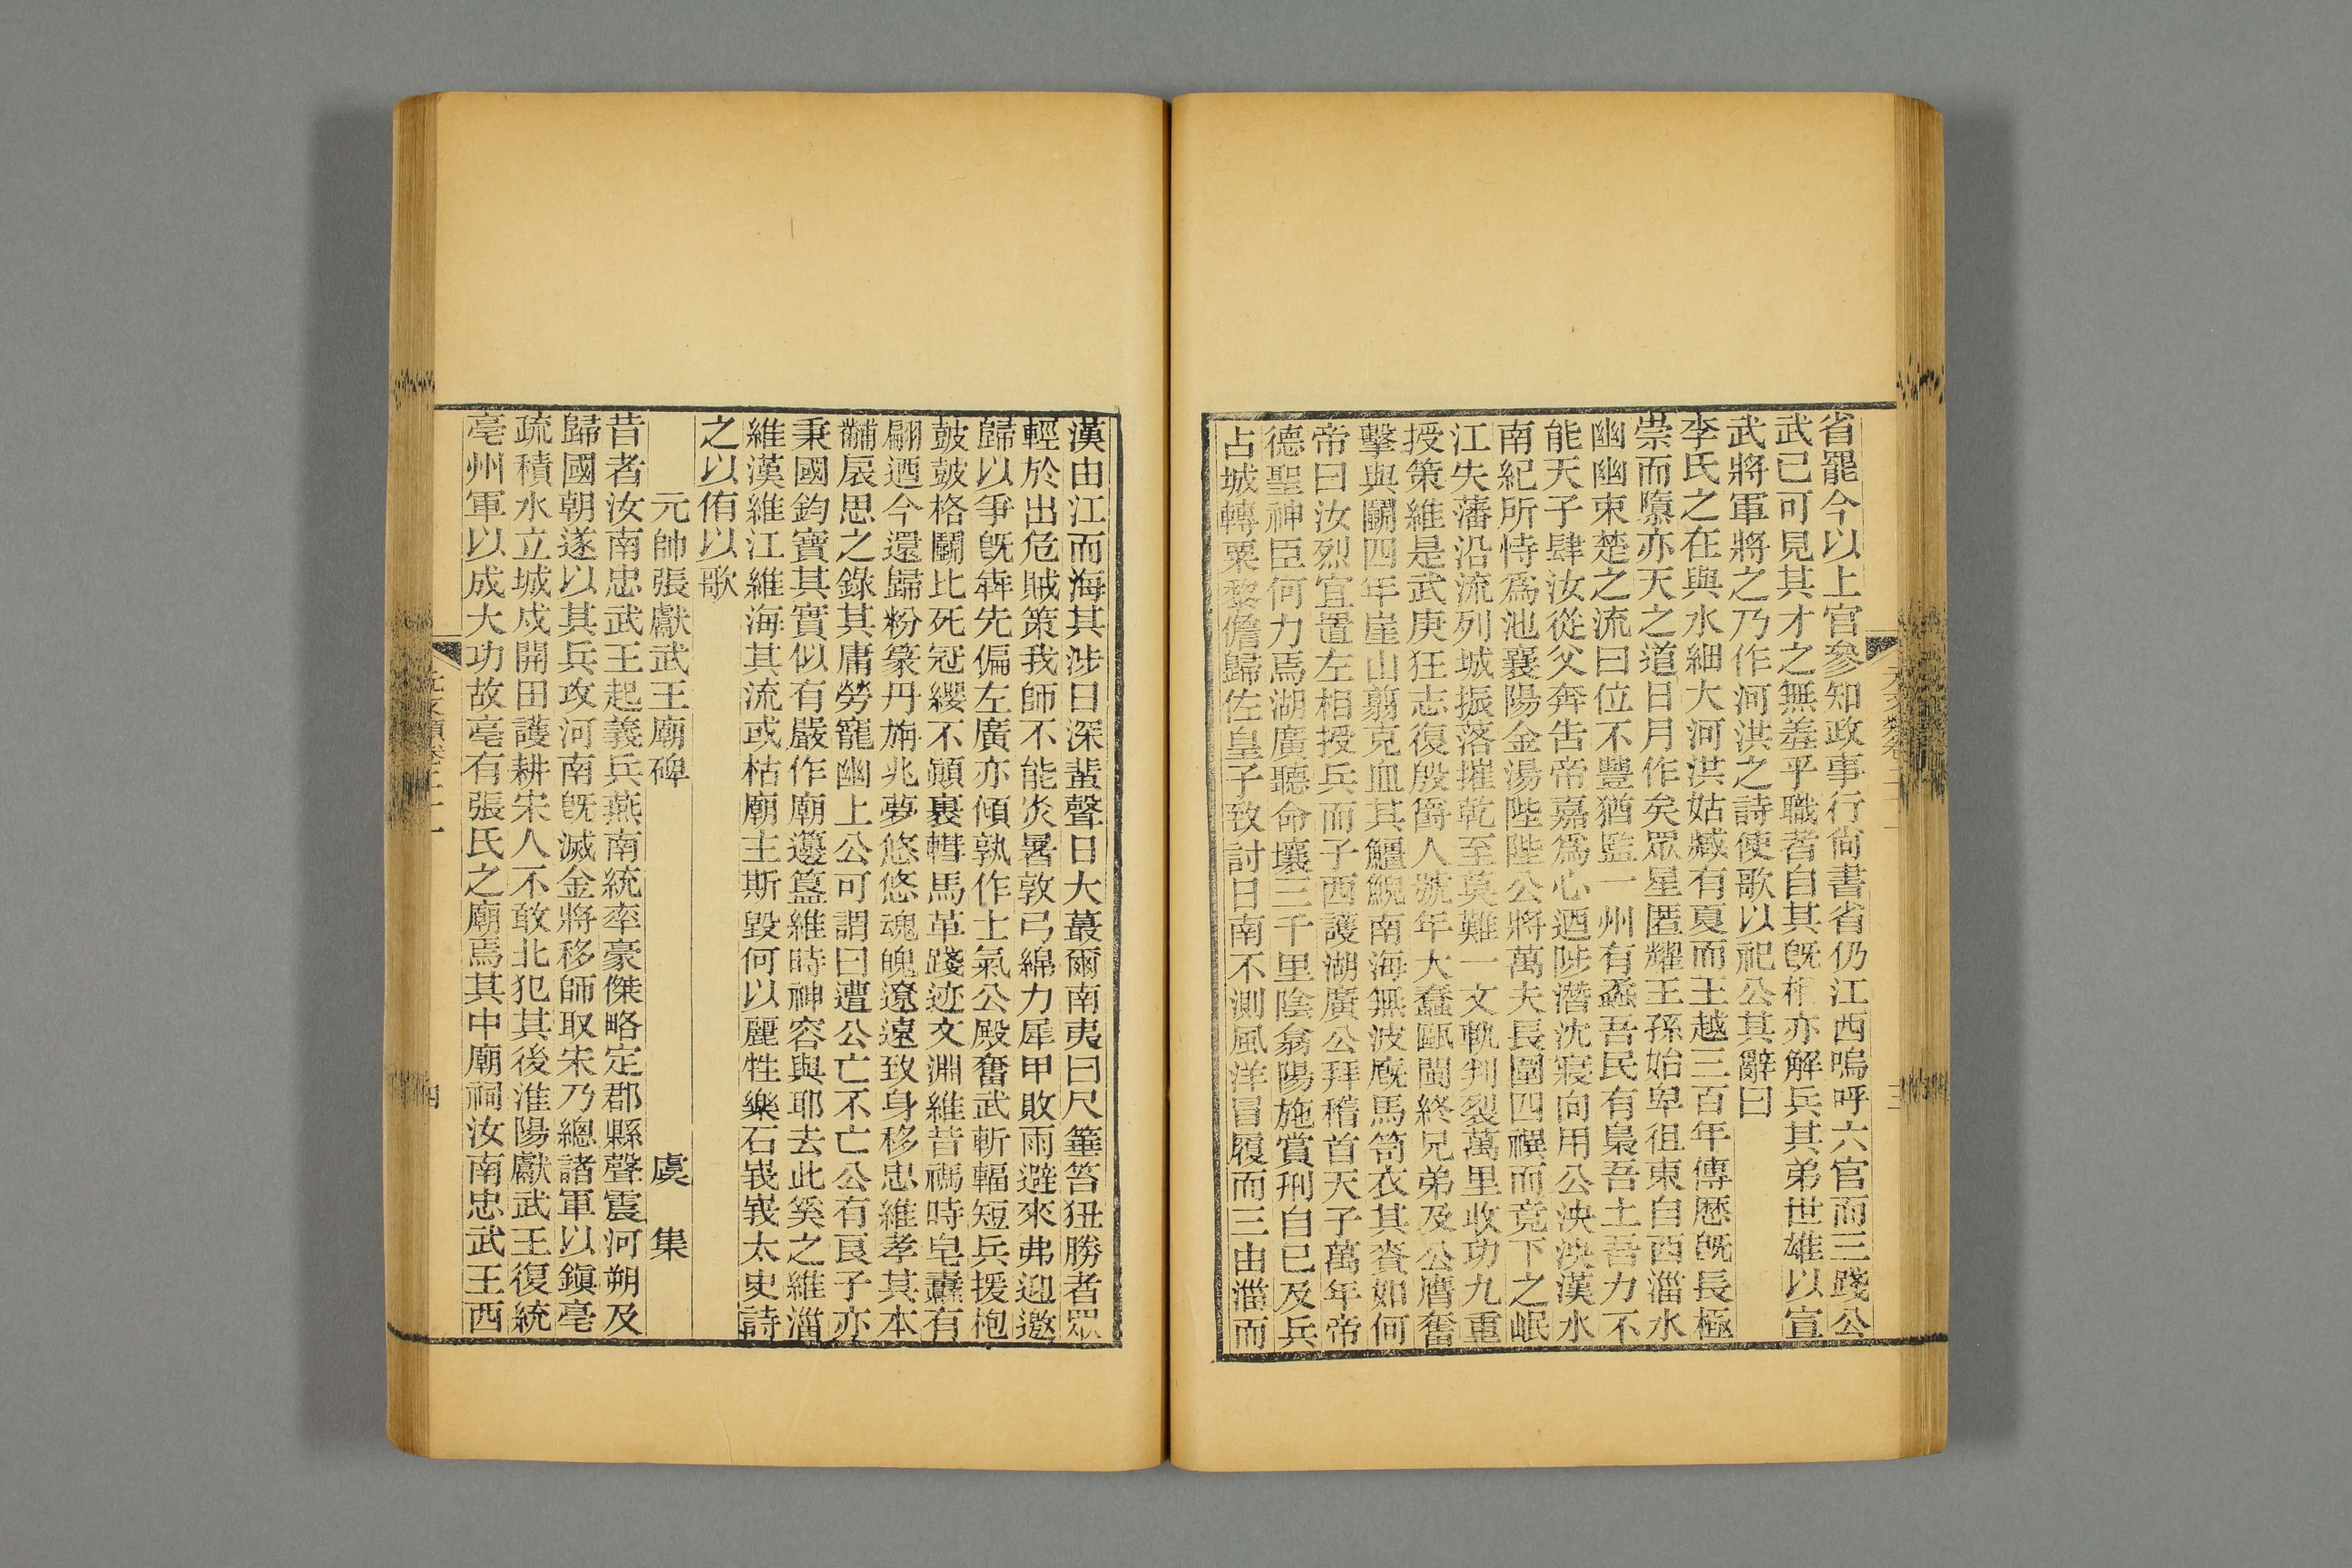 省罷今以上官參知政事行尙書省仍江西嗚呼六官而三踐公
武已可見其才之無羞乎職者自其旣相亦解兵其弟世雄以宣
武將軍將之乃作河洪之詩使歌以祀公其辭曰
李氏之在與水細大河洪姑臧有夏而王越三百年傳歷旣長極
崇而隳亦天之道日月作矣眾星匿耀王孫始卑徂東自西淄水
幽幽束楚之流曰位不豐猶監一州有蝨吾民有梟吾土吾力不
能天子肆汝從父奔告帝嘉爲心迺陟潛沈寢向用公泱泱漢水
南紀所恃爲池襄陽金湯陛陛公將萬夫長圍四禩而竟下之岷
江失藩沿流列城振落摧乾至莫難一文軌判裂萬里收功九重
授策維是武庚狂志復殷爵人號年大蠢甌閩終兄弟及公膺奮
擊與鬬四年崖山翦克血其鱷鯢南海無波廐馬笥衣其賚如何
帝曰汝烈宜置左相授兵而子西護湖廣公拜稽首天子萬年帝
德聖神臣何力焉湖廣聽命壤三千里陰翕陽施賞刑自已及兵
占城轉粟黎儋歸佐皇子致討日南不測風洋冒履而三由淄而
漢由江而海其涉日深蜚聲日大蕞爾南夷曰尺箠笞狃勝者眾
輕於出危賊策我師不能炎暑敦弓綿力犀甲敗雨避來弗迎邀
歸以爭旣犇先偏左廣亦傾孰作士氣公殿奮武斬輻短兵援枹
鼓鼓格鬬比死冠纓不顚裹轊馬革踐迹文淵維昔禡時皂纛有
翩迺今還歸粉篆丹旃兆夢悠悠魂魄遼遠致身移忠維孝其本
黼扆思之錄其庸勞寵幽上公可謂曰遭公亡不亡公有良子亦
秉國鈞寶其實似有嚴作廟籩簋維時神容與耶去此奚之維淄
維漢維江維海其流或枯廟主斯毀何以麗牲樂石峩峩太史詩
之以侑以歌
元帥張獻武王廟碑 虞集
昔者汝南忠武王起義兵燕南統率豪傑略定郡縣聲震河朔及
歸國朝遂以其兵攻河南旣滅金將移師取宋乃總諸軍以鎭亳
疏積水立城戍開田護耕宋人不敢北犯其後淮陽獻武王復統
亳州軍以成大功故亳有張氏之廟焉其中廟祠汝南忠武王西